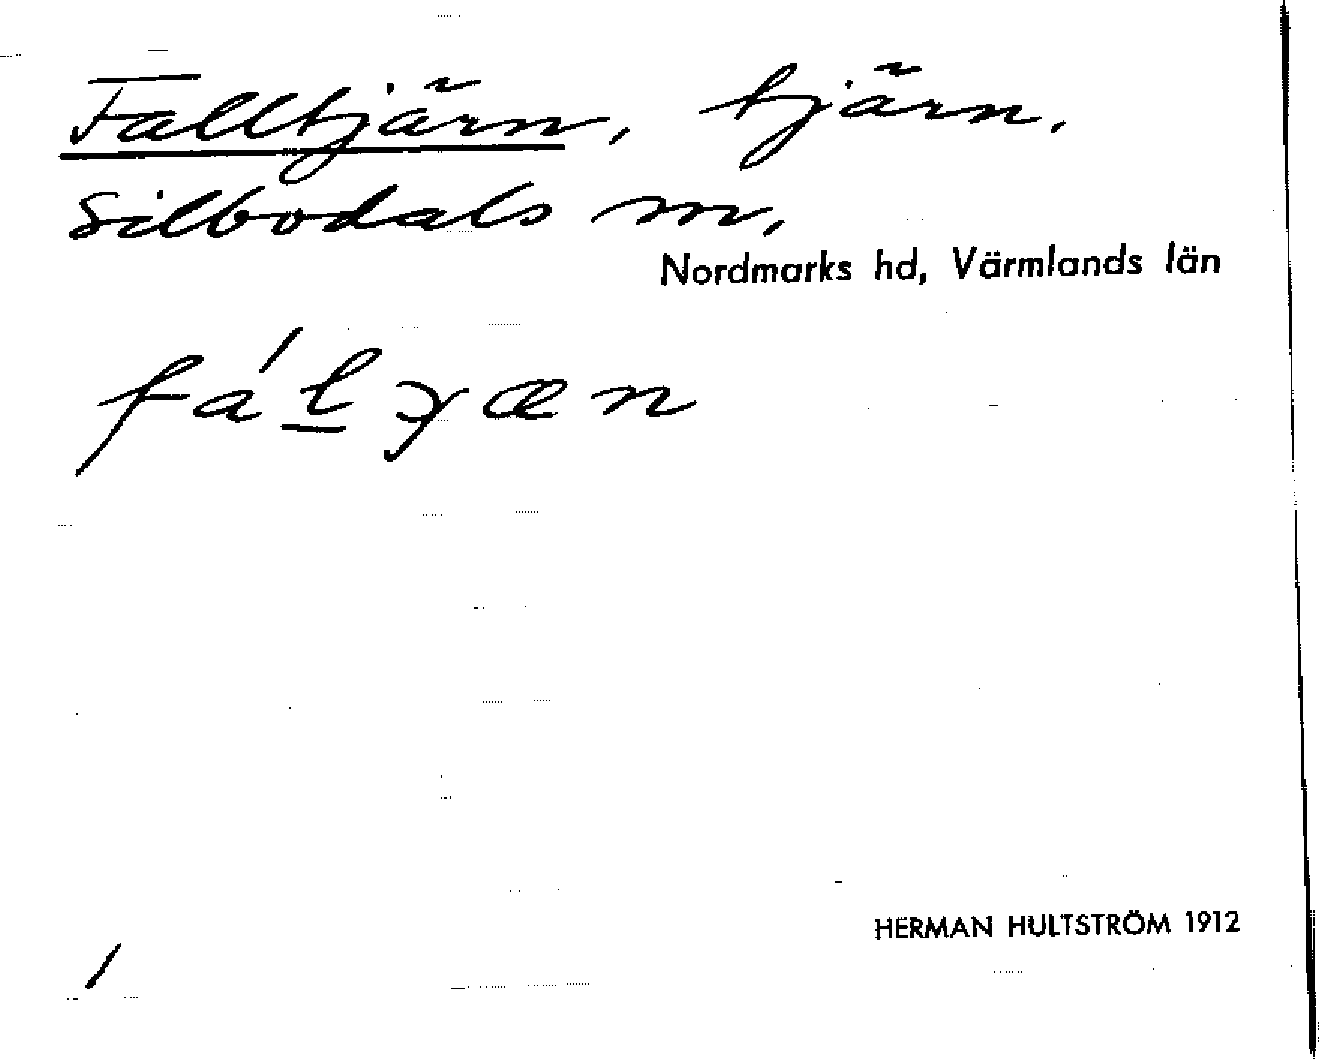 Falltjärn, tjärn.
Silbodals sn,
Nordmarks hd, Värmlands län
HERMAN HULTSTRÖM 1912